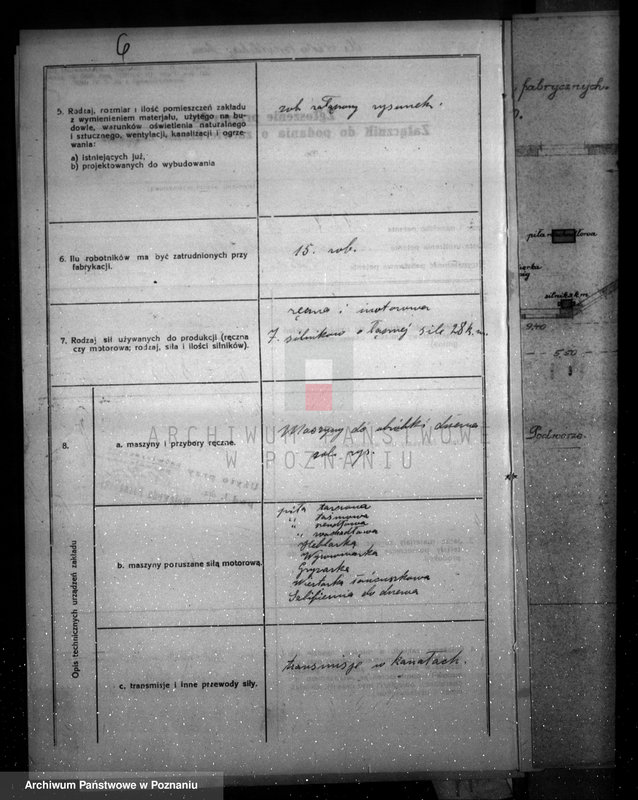 6
5. Rodzaj, rozmiar i ilość pomieszczeń zakładu
z wymienieniem materjału, użytego na bu-
dowie, warunków oświetlenia naturalnego
i sztucznego, wentylacji, kanalizacji i ogrze
wania:
a) istniejących już,
b) projektowanych do wybudowania
zob. załączony rysunek.
6. Ilu robotników ma być zatrudnionych przy
fabrykacji.
15. rob.
7. Rodzaj sił używanych do produkcji (ręczna
czy motorowa; rodzaj, siła i ilości silników).
ręczna i motorowa
7. silników o łącznej sile 28 k.m.
8.
Opis technicznych urządzeń zakładu
a. maszyny i przybory ręczne.
Maszyny do obróbki drzewa
zob. rys.
b. maszyny poruszane siłą motorową.
piła tarczowa
" taśmowa
" wahadłowa
Heblarka
Wyrówniarka
Gryzarka
Wiertarka łańcuszkowa
Szlifiernia do drzewa
c. transmisje i inne przewody siły.
transmisje w kanałach.
fabrycznych.
piła
silnik
k.m.
9,40
5.50
Podwórze.
ARCHIWUM PAŃSTWOWE
W POZNANIU
Archiwum Państwowe w Poznaniu